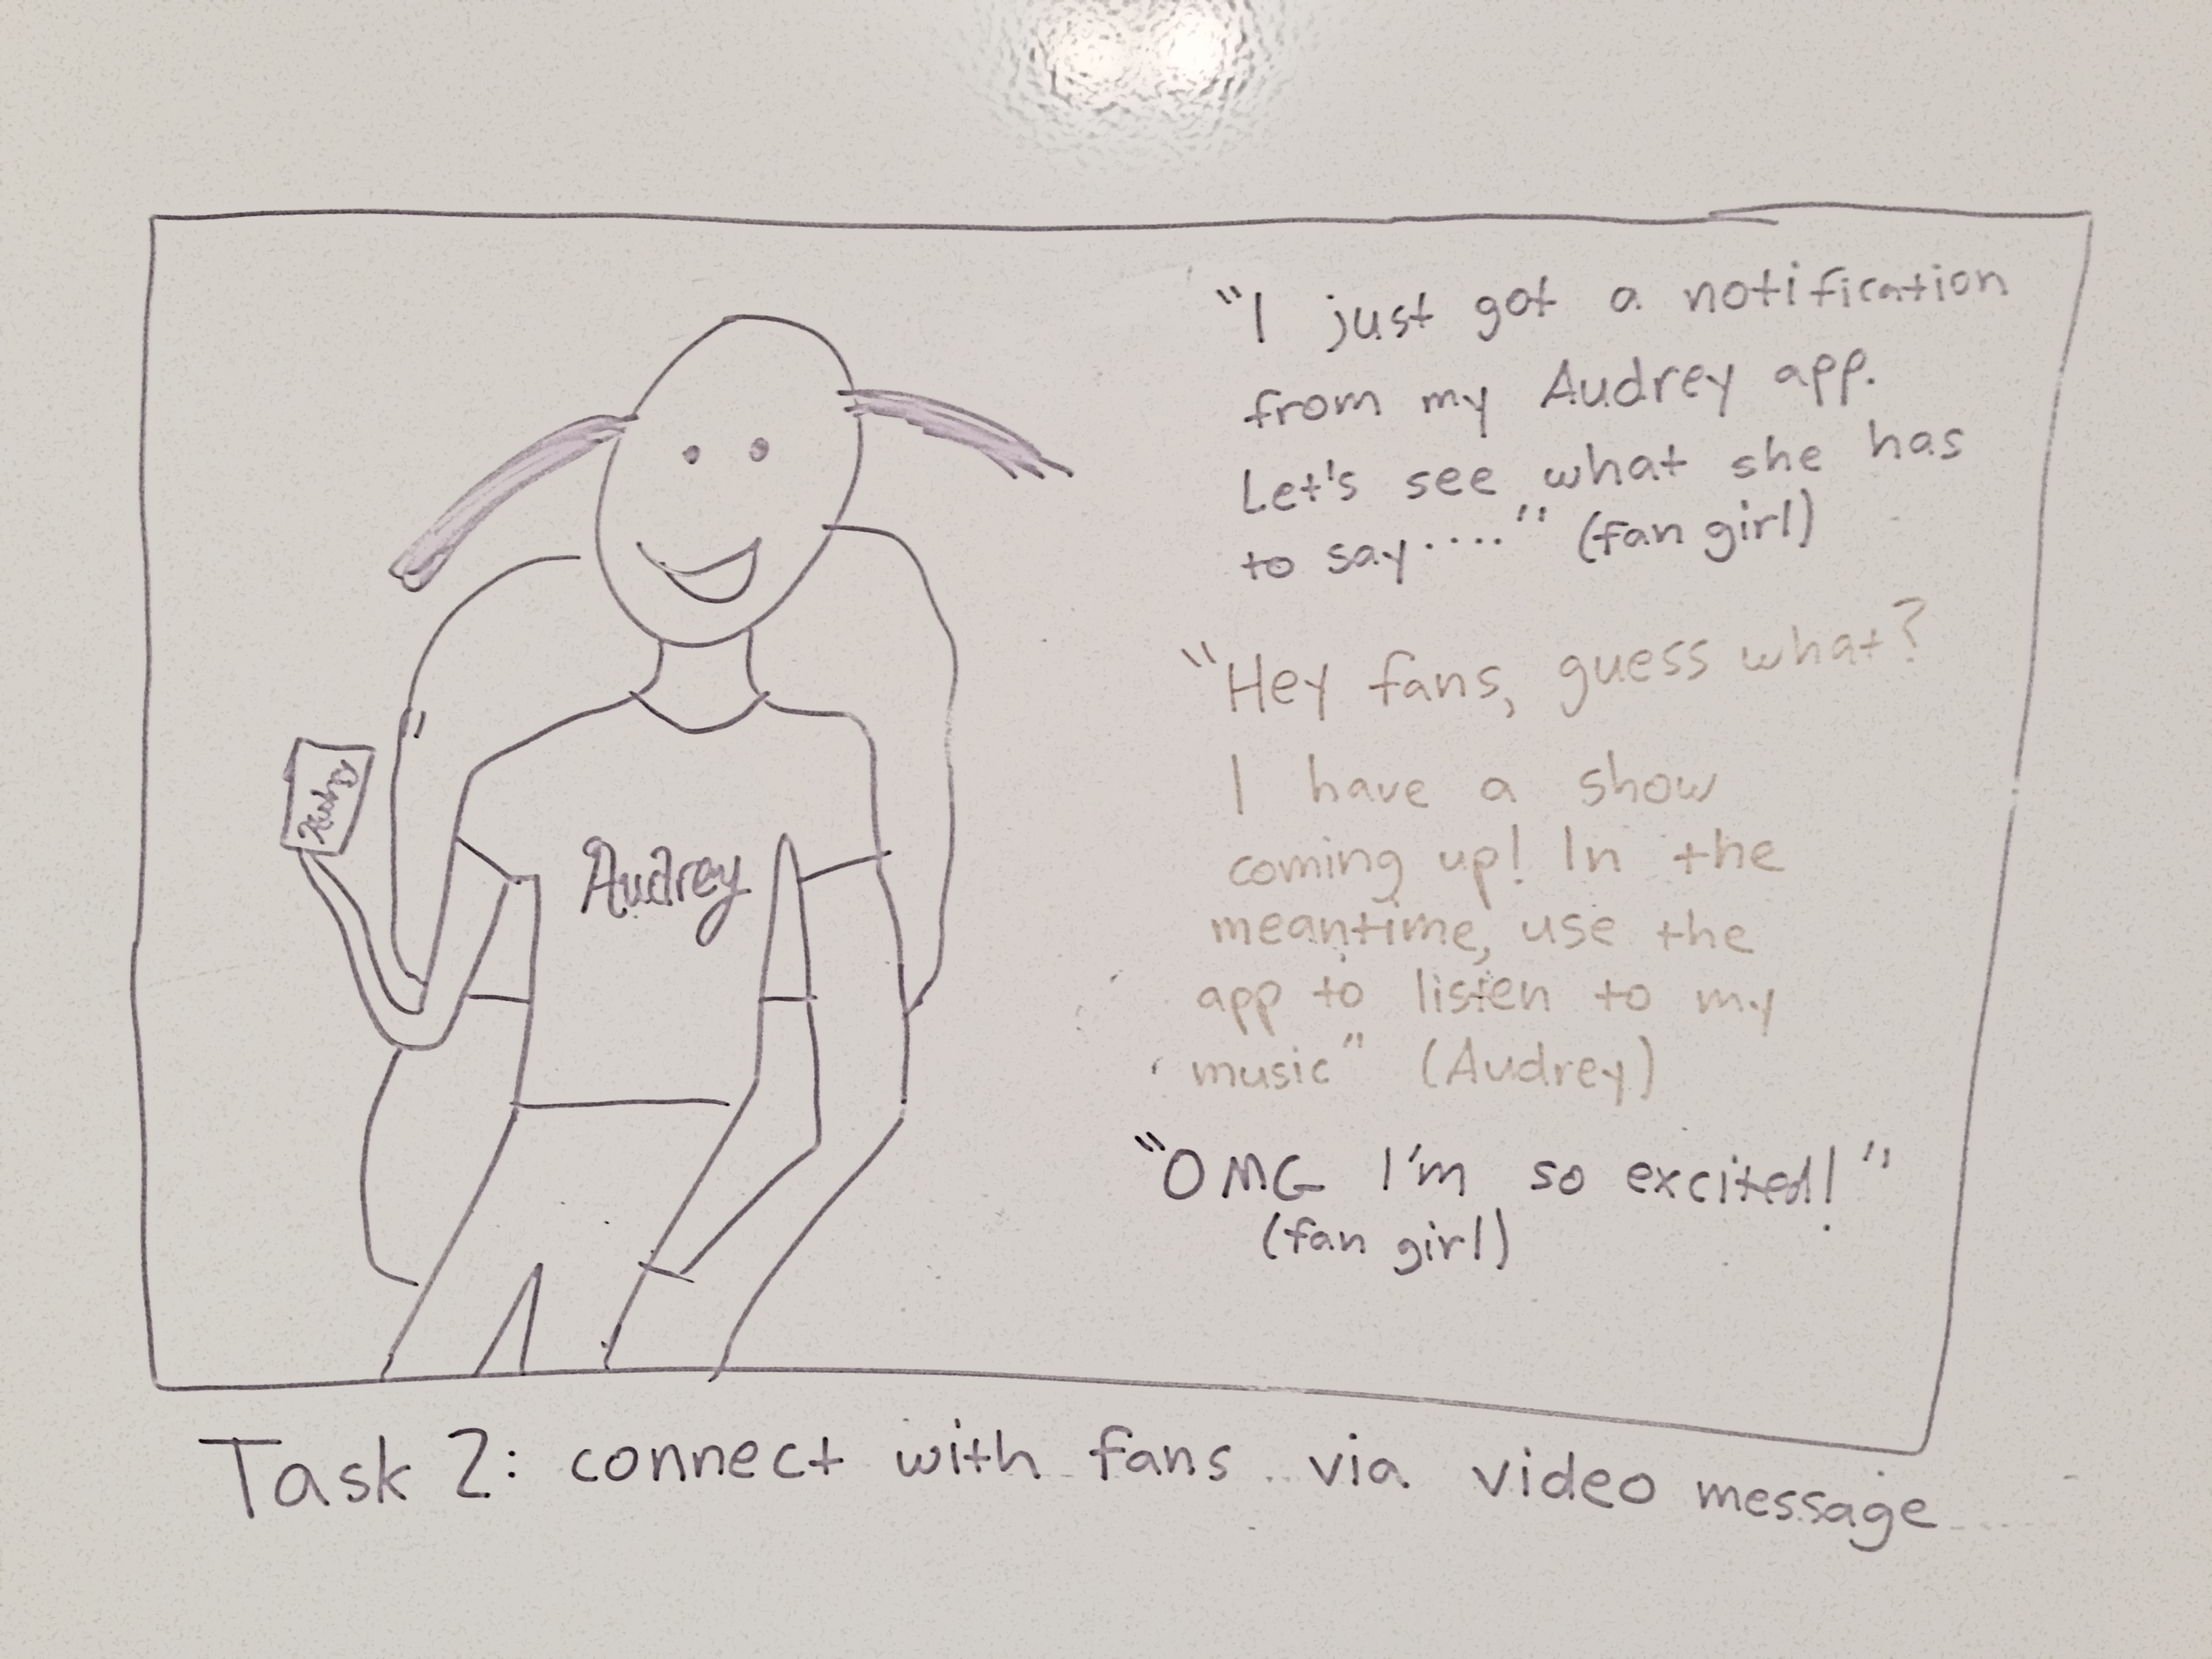 "I just got a notification
from my Audrey app.
Let's see what she has
to say...." (fan girl)
"Hey fans, guess what?
I have a show
coming up! In the
meantime, use the
app to listen to my
music" (Audrey)
"OMG I'm so excited!"
(fan girl)
Audrey
Task 2: connect with fans via video message